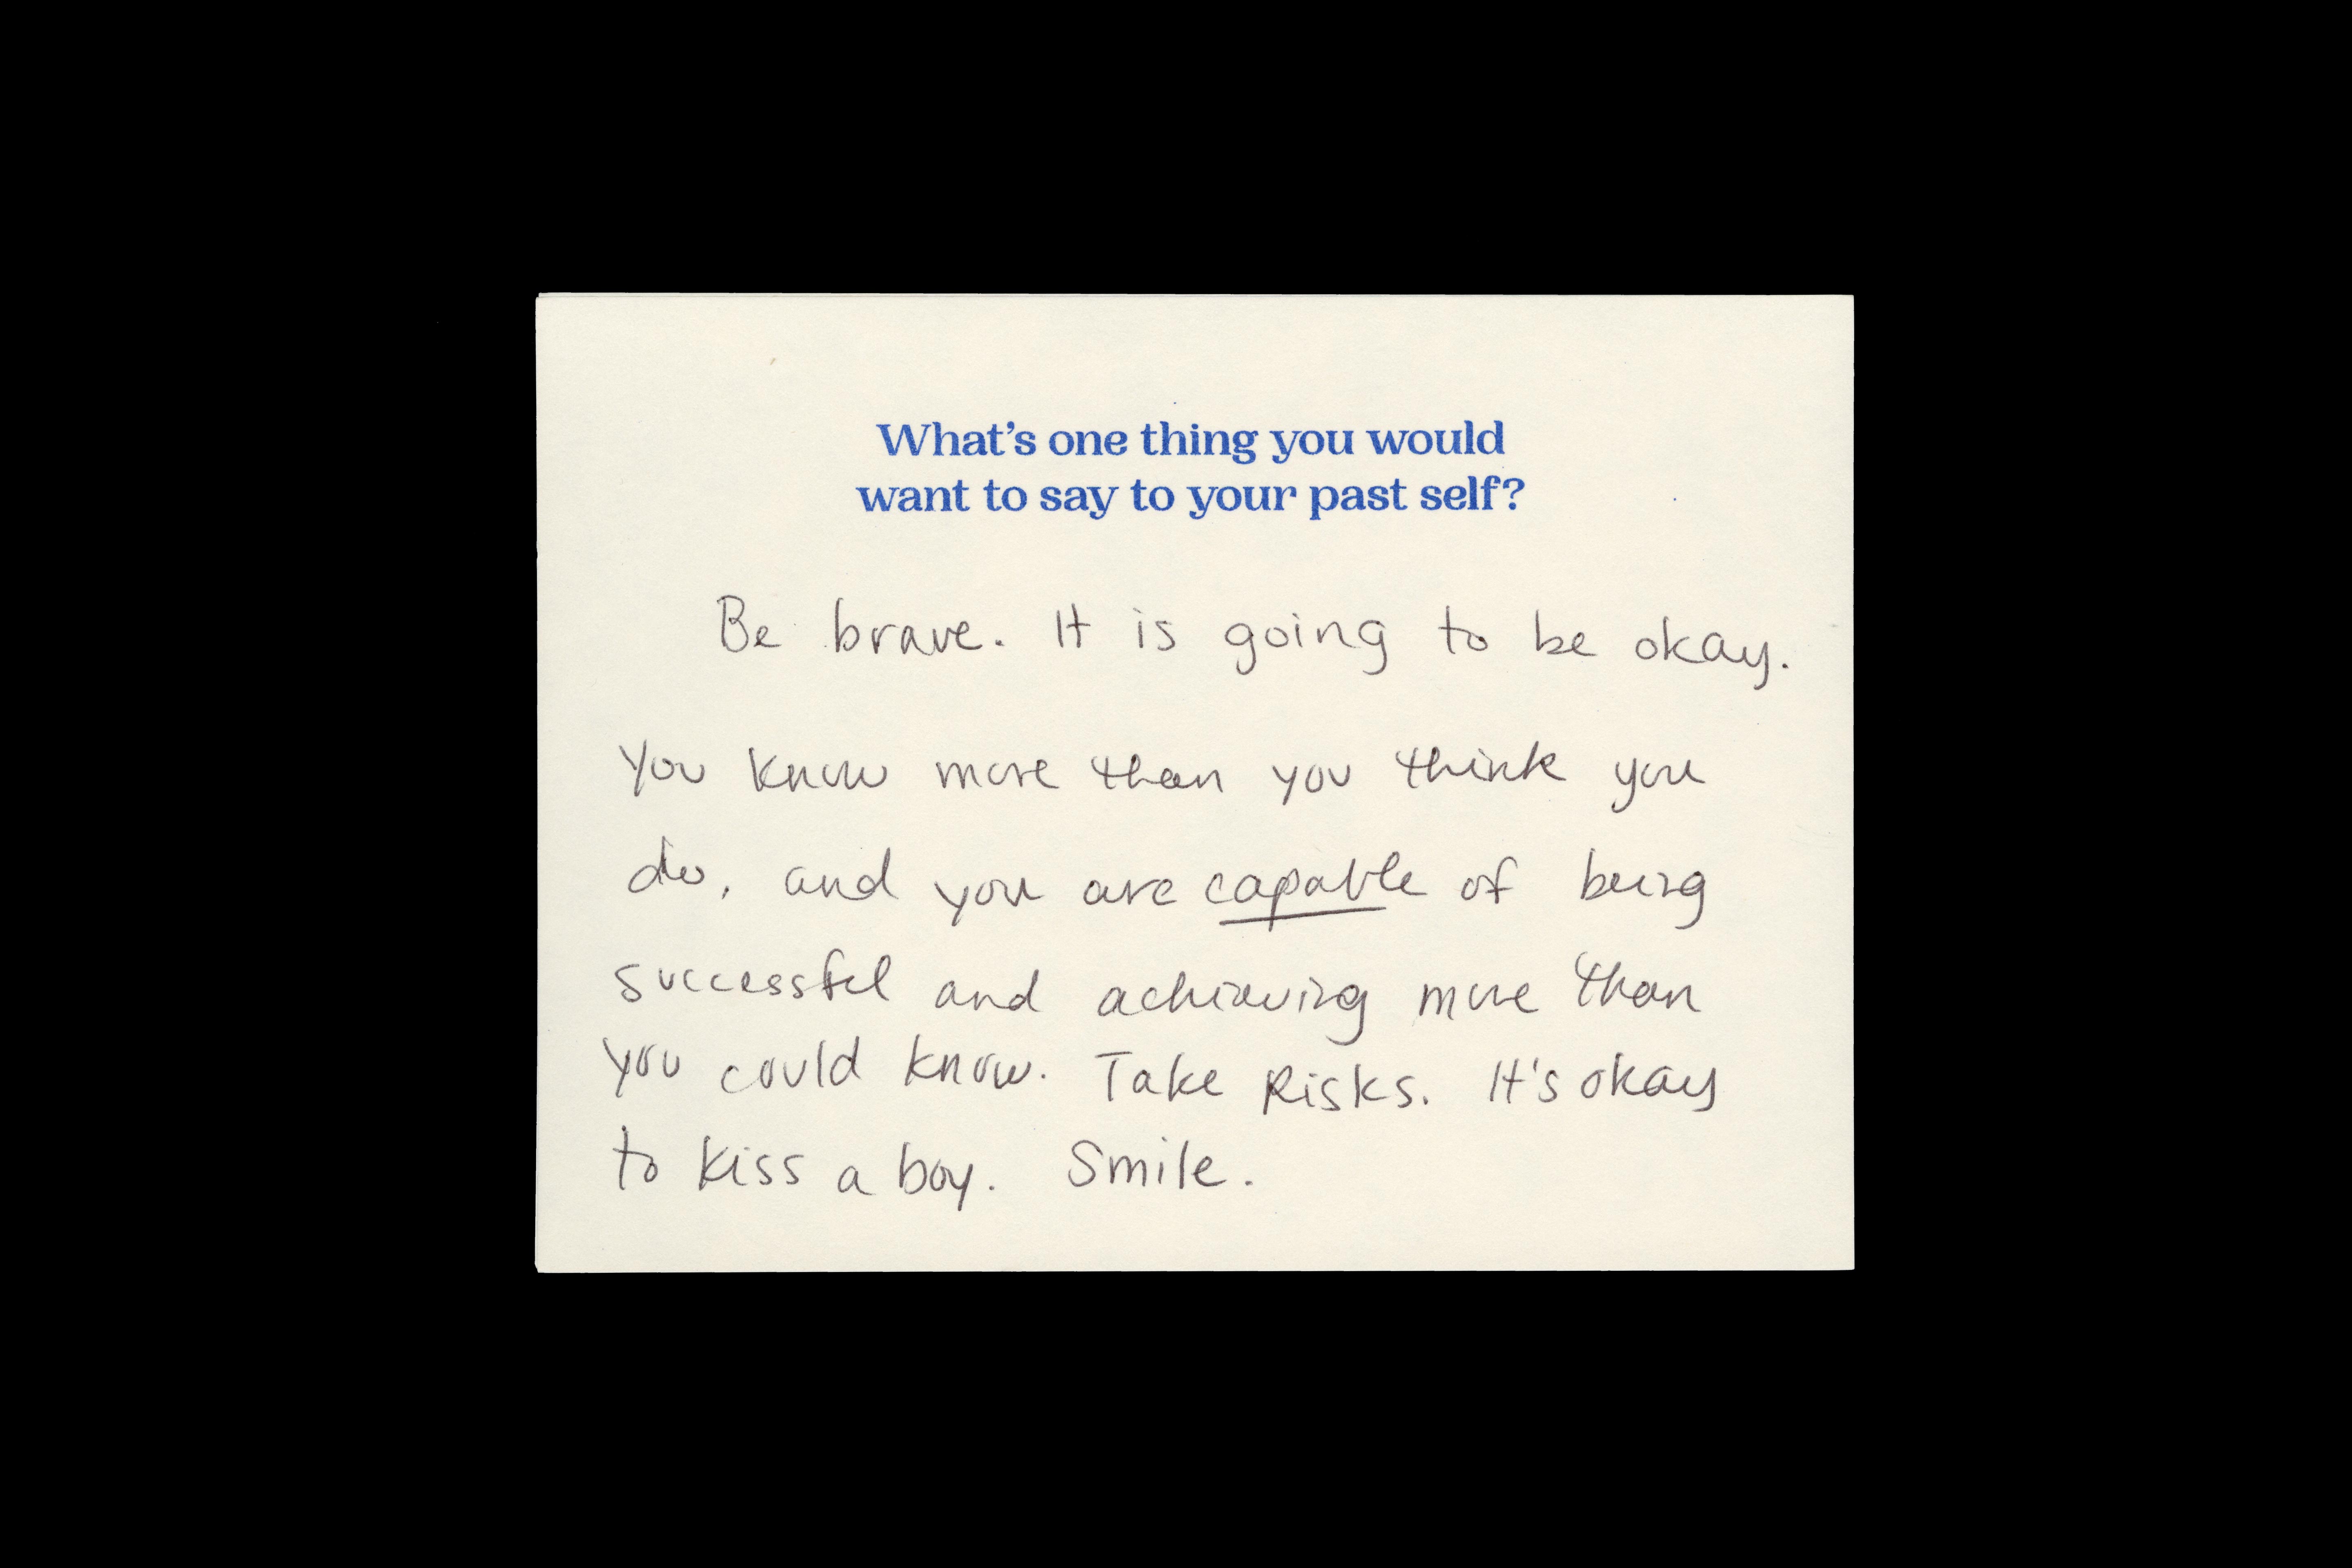 What's one thing you would
want to say to your past self?
Be brave. It is going to be okay.
You know more than you think you
do, and you are capable of being
successful and achieving more than
you could know. Take Risks. It's okay
to kiss a boy. Smile.